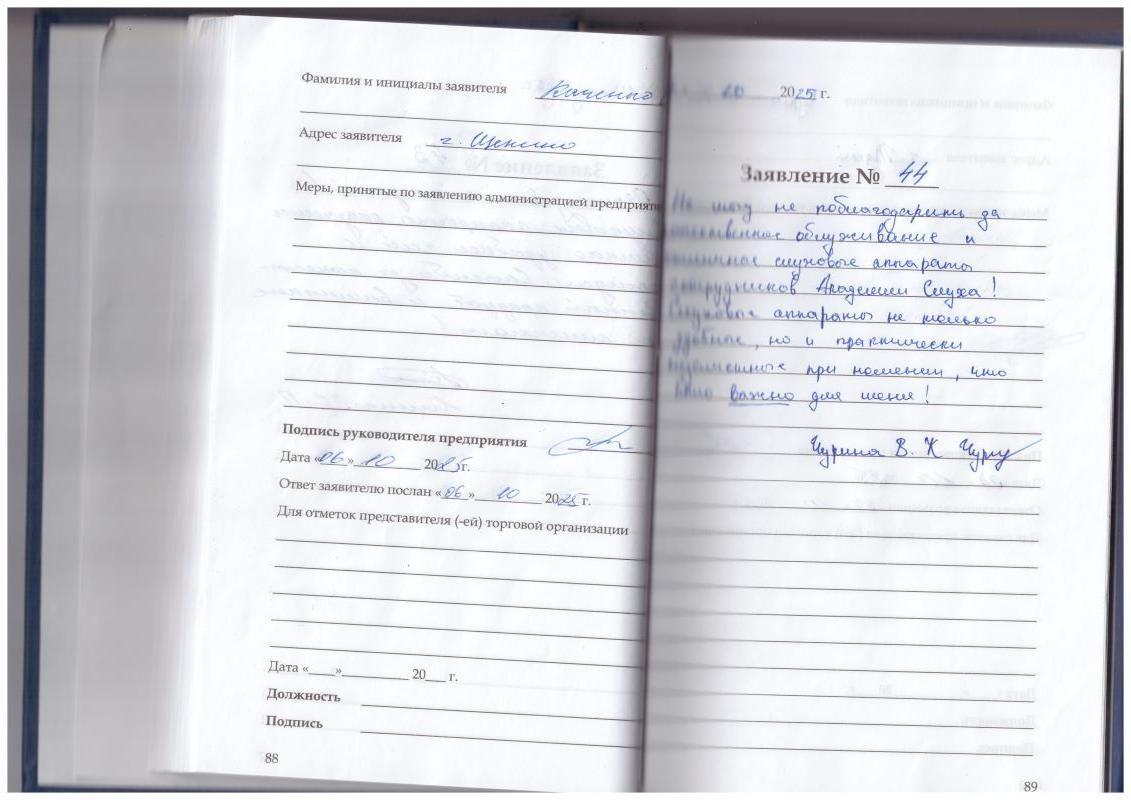 Фамилия и инициалы заявителя Каченко
Адрес заявителя г. Щекино
Меры, принятые по заявлению администрацией предприяти
Подпись руководителя предприятия
Дата «06» 10 2025 г.
Ответ заявителю послан «06» 10 2025 г.
Для отметок представителя (-ей) торговой организации
Дата «____»__________ 20___ г.
Должность
Подпись
88
10 2025 г.
Заявление № 44
Не могу не поблагодарить за
обслуживание и
отличные слуховые аппараты
сотрудников Академии Слуха!
Слуховые аппараты не только
удобные, но и практически
незаметные при ношении, что
важно для меня!
Чурина В. К
89